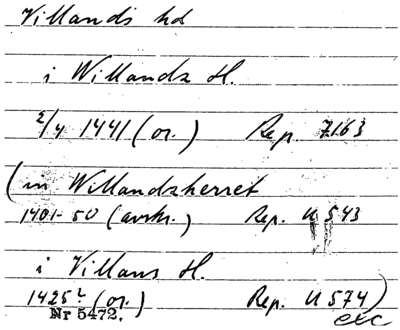 Villands hd
i Willandz H.
2/4 1441 (or.) Rep. 7163
(in Willandzherret
1401-50 (avskr.) Rep. II 543
i Villans H.
1425 (or.) Rep. II 574)
Nr 5472. exc